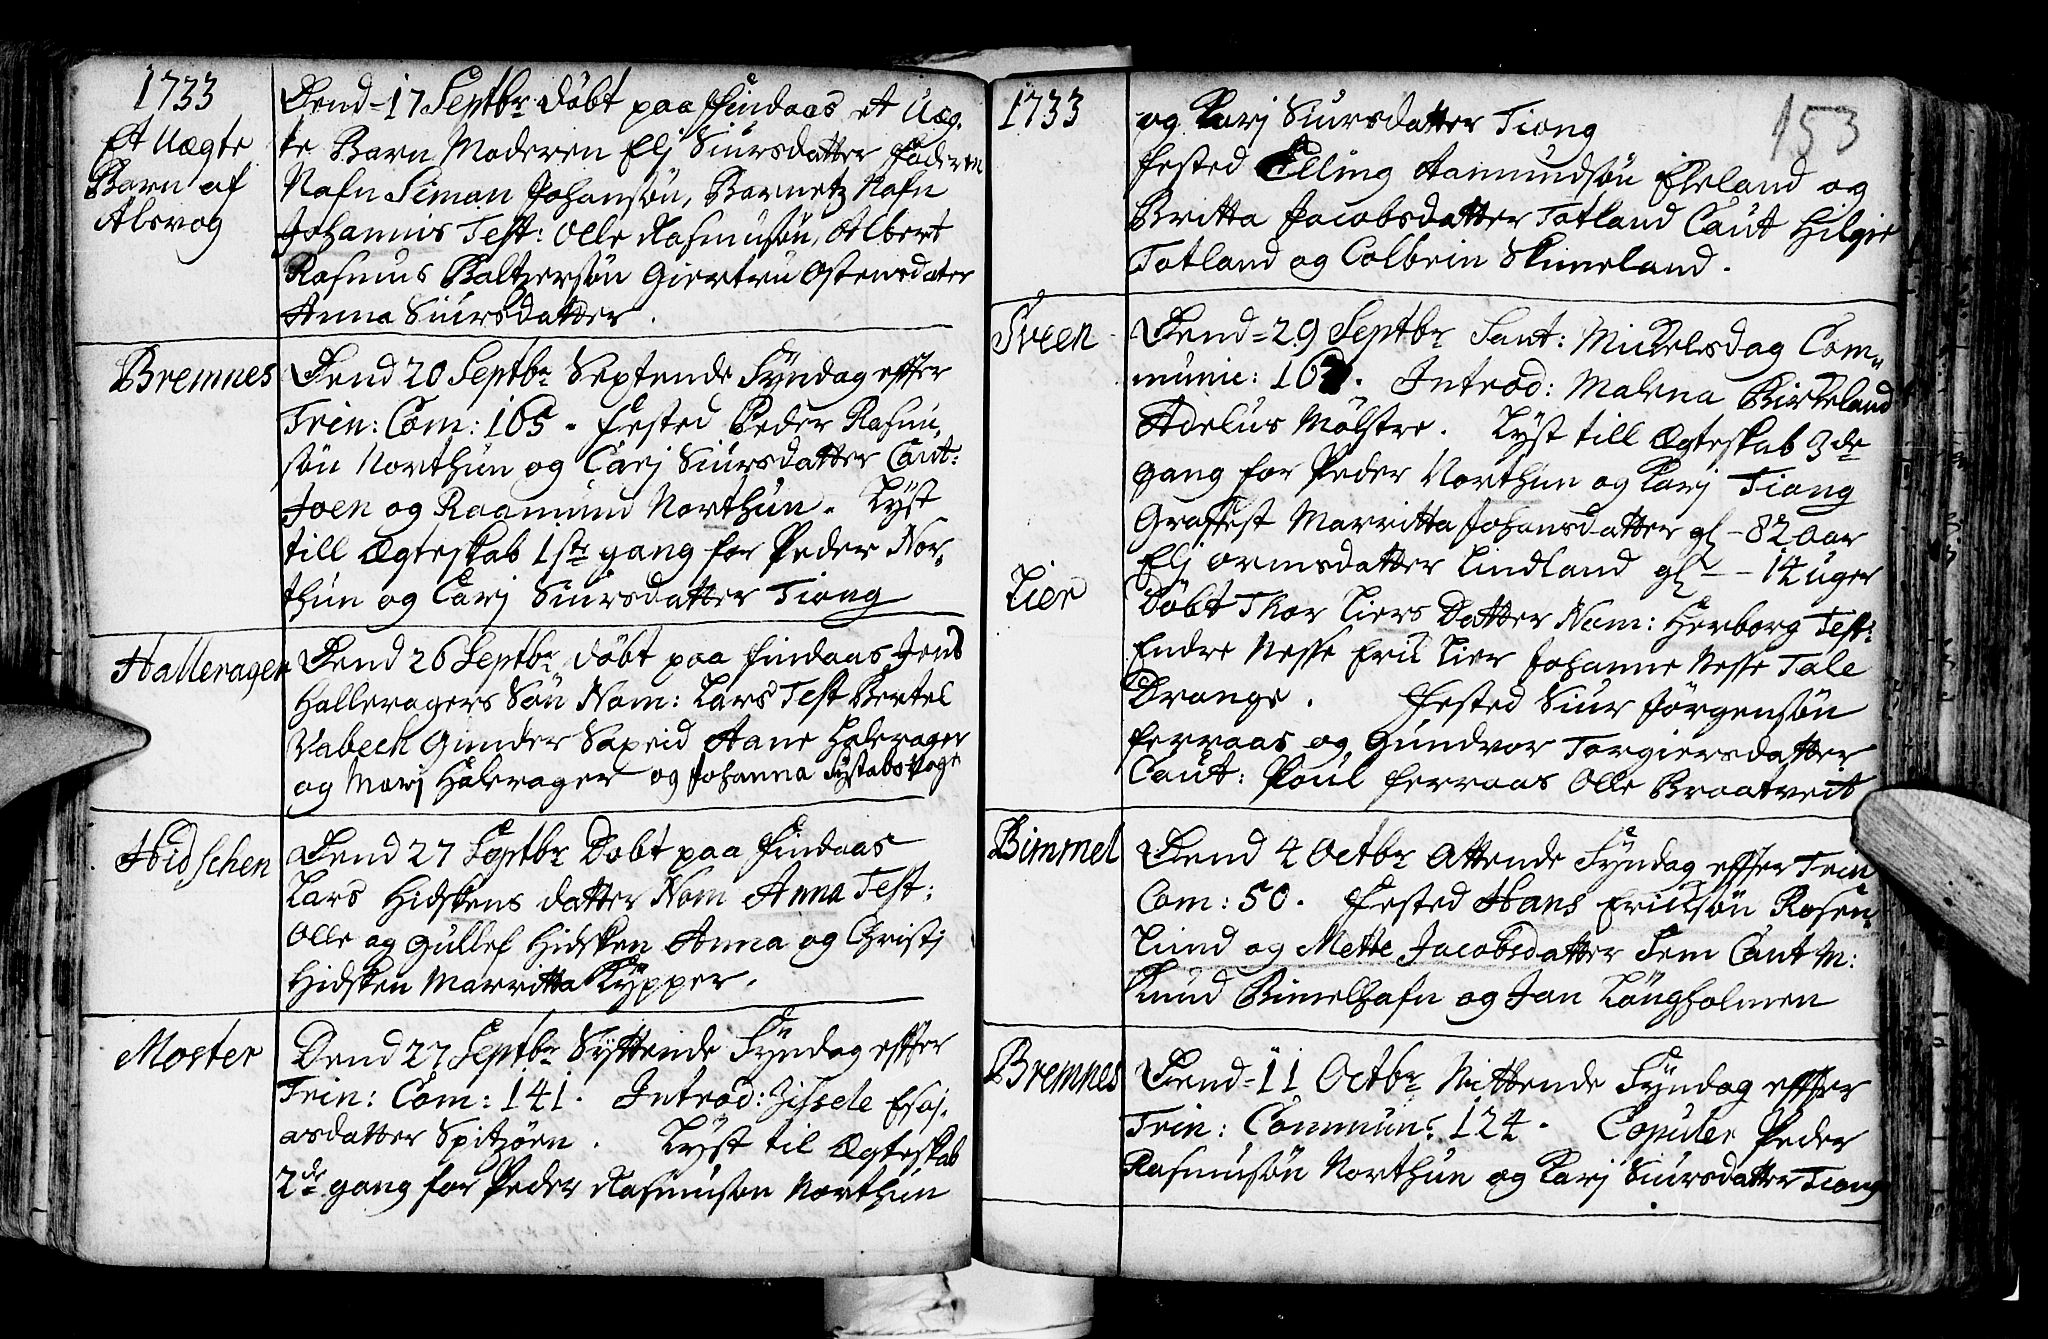 1733
Et Uægte
Barn af
Alsvog
Dend-17 Septbr døbt paa Findaas et Uæg-
te Barn, Moderen Elj Siursdatter Faderen
Nafn Siman Johansøn, Barnetz Nafn
Johannis Test: Olle Rasmusøn, Albert
Rasmus Baltzersøn Giertru Ostensdater
Anna Siursdatter.
Bremnes
Dend 20 Septbr Septende Syndag effter
Trin: Com: 165. Fested Peder Rasmu,
søn Northun og Carj Siursdatter Caut:
Joen og Raamund Northun. Lyst
till Ægteskab 1ste gang for Peder Nor-
thun og Carj Siursdatter Tiong
Hallerager
Dend 26 Septbr døbt paa Findaas Jens
Halleragers Søn Nom: Lars Test Bertel
Vabech Gunder Sapeid Aane Halerager
og Marj Halerager og Johanna
Hidschen
Dend 27 Septbr Døbt paa Findaas
Lars Hidskens datter Nom Anna Test:
Olle og Gullef Hidsken Anna og Christj
Hidsken Marritta Kypper.
Moster
Dend 27 Septbr Syttende Syndag effter
Trin: Com: 141. Introd: Zissele Esaj-
asdatter Spitzøen. Lyst til Ægteskab
2de gang for Peder Rasmusøn Northun
1733
153
og Karj Siursdatter Tiong
Fested Elling Aamundsøn Eieland og
Britta Jacobsdatter Totland Caut Hilgie
Totland og Colbein Skimeland.
Sveen
Dend-29 Septbr Sant: Mickelsdag Com-
munic: Introd: Malena Birkeland
Adelus Mølstre. Lyst till Ægteskab 3de
gang for Peder Northun og Karj Tiong
Graffest Marritta Johansdatter gl-82 Aar
Elj Ormsdatter Lindland gl--14 uger
Lier
Døbt Thor Liers Datter Nom: Herborg Test:
Endre Nesse Erik Lier Johanne Nesse Tale
Drange. Fested Siur Jørgensøn
Ferraas og Gundvor Torgiersdatter
Caut: Poul Ferraas Olle Braatveit
Bimmel
Dend 4 Octbr Attende Syndag effter Trin
Com: 50. Fested Hans Ericksøn Rosen-
Lund og Mette Jacobsdatter Fem Caut M:
Knud Bimelhafn og Jan Langholmen
Bremnes
Dend-11 Octbr Nittende Syndag effter
Trin: Commun: 124. Copuler Peder
Rasmusøn Northun og Karj Siursdatter Tiong